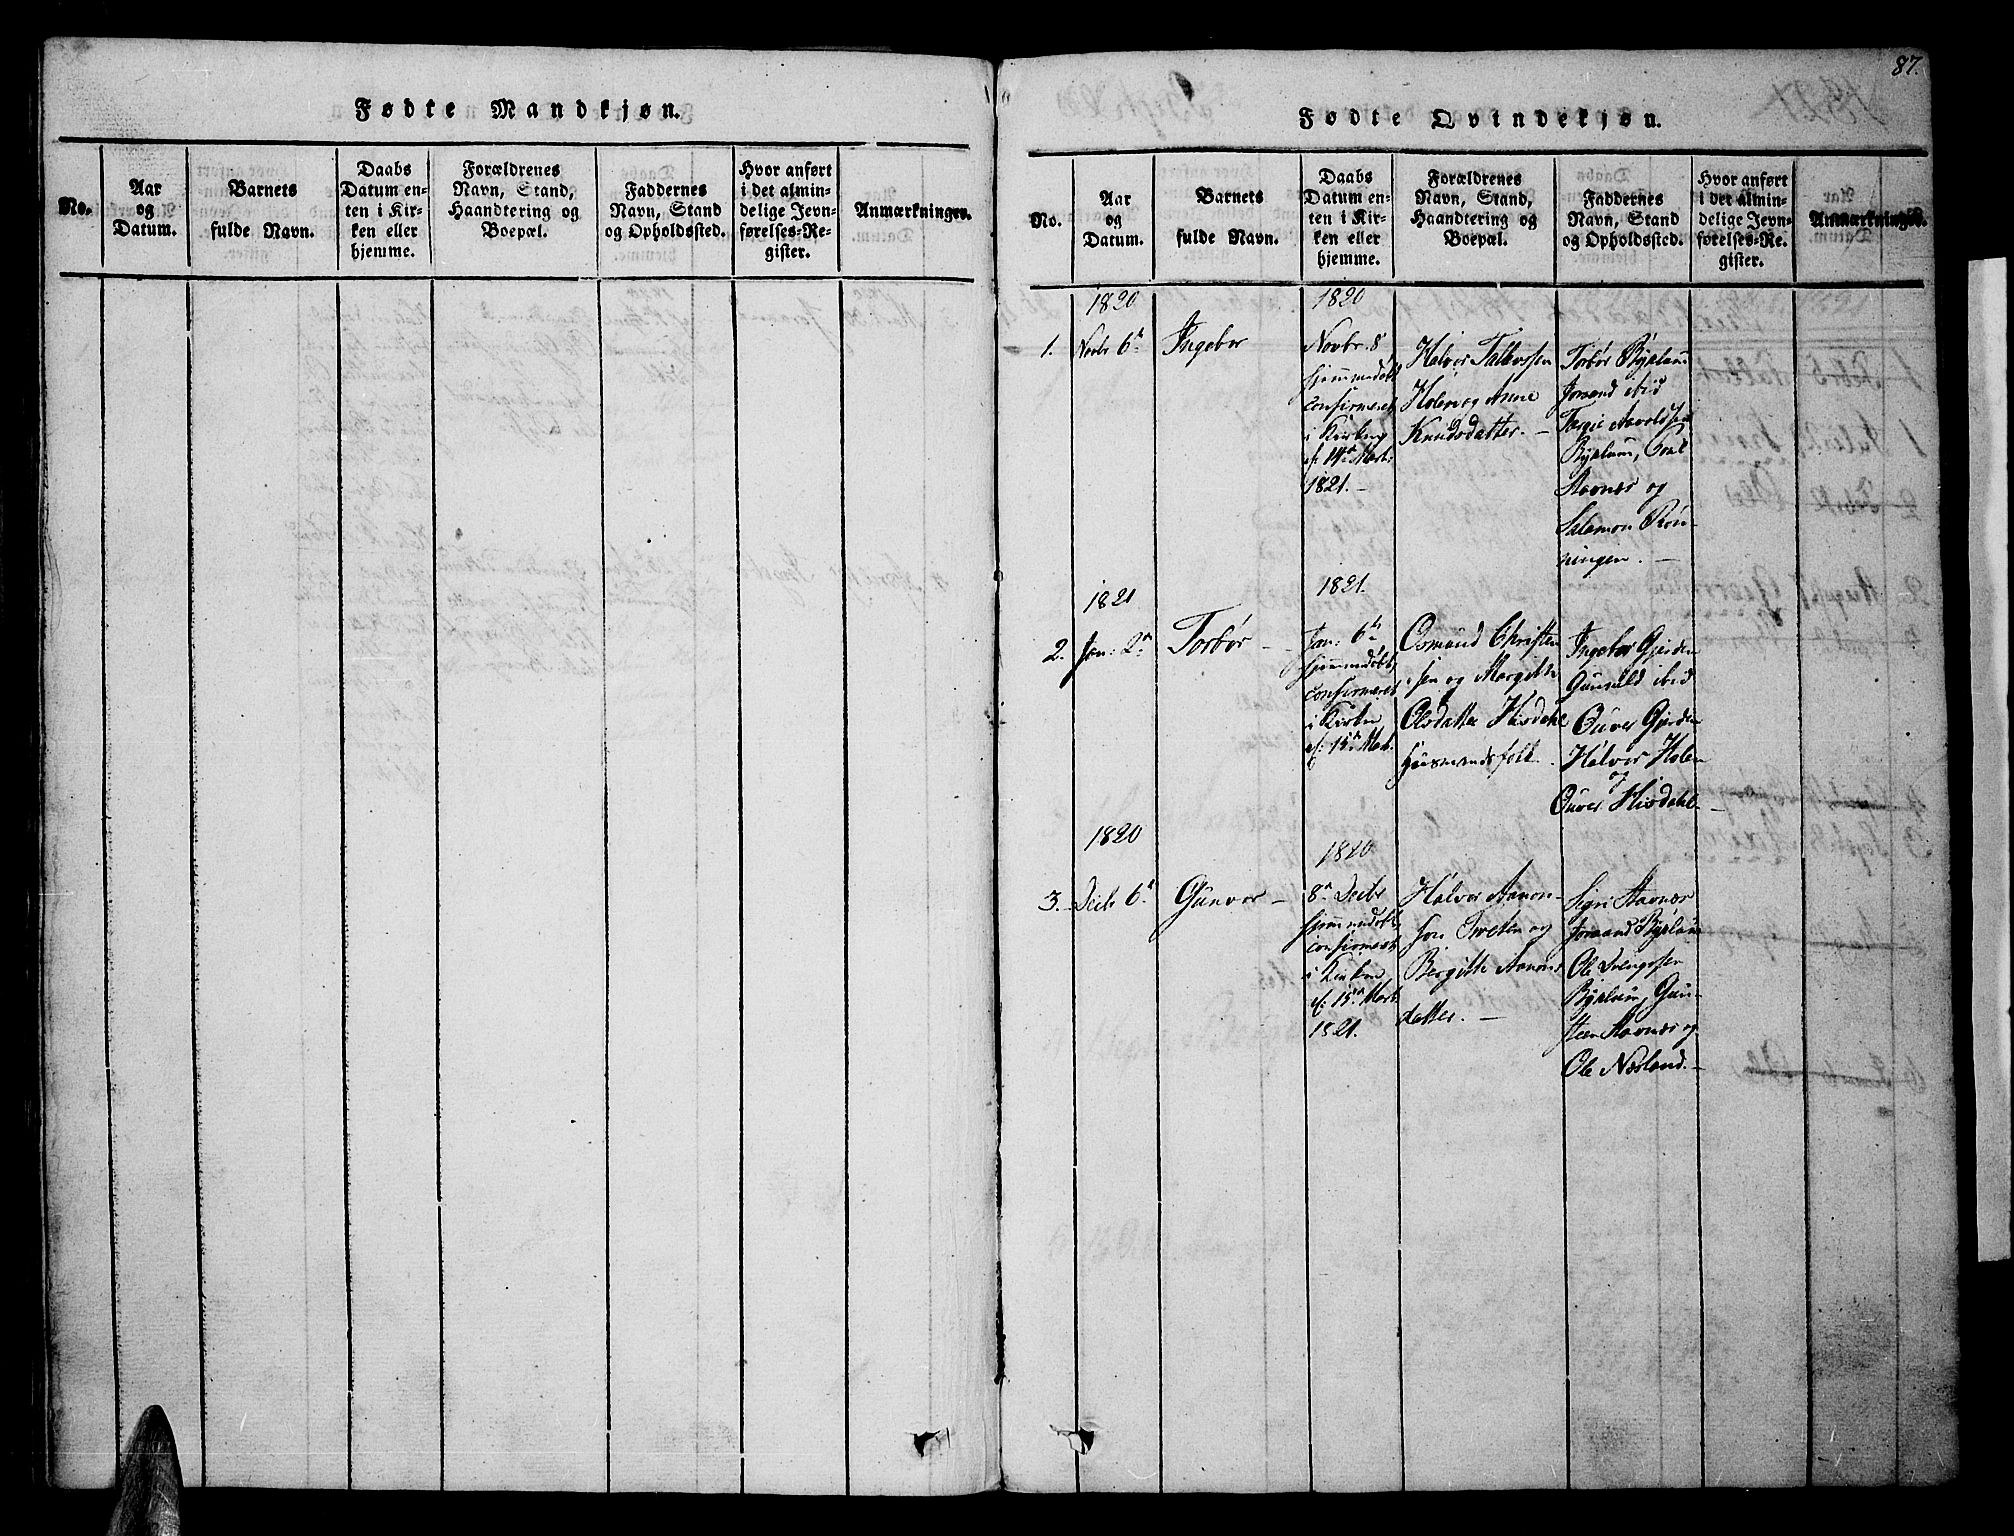 87.
Fødte Mandkjøn.
No.
Aar
og
Datum.
Barnets
fulde Navn.
Daabs
Datum en-
ten i Kir-
ken eller
hjemme.
Forældrenes
Navn, Stand,
Haandtering og
Boepæl.
Faddernes
Navn, Stand
og Opholdssted.
Hvor anført
i det almin-
delige Jevn-
førelses-Re-
gister.
Anmærkninger.
Fødte Qvindekjøn.
No.
Aar
og
Datum.
Barnets
fulde Navn.
Daabs
Datum en-
ten i Kir-
ken eller
hjemme.
Forældrenes
Navn, Stand,
Haandtering og
Boepæl.
Faddernes
Navn, Stand
og Opholdssted.
Hvor anført
i det almin-
delige Jevn-
førelses-Re-
gister.
Anmærkninger.
1820
1.
Novbr 6
Ingebor
1820
Novbr. 8
hjemmedøbt
confirmeret
i Kirken
14 Mart.
1821. –
Halvor Tallevssen
Holen og Anne
Knudsdatter. –
Torbør Byklum
Joraand ibid
Tergie Aavoldsen
Byklum,
Stavnæs og
Salamon Røn-
ningen. –
1821
2.
Jan: 2
Torbør –
1821.
Jan: 6
hjemmedøbt,
confirmeret
i Kirken
15 Mart.
Osmund Christen
sen og Margitte
Olsdatter Hisdahl
Huusmandsfolk.
Ingebor Gjerden
Gunuld ibid
Ouver Gjerden
Halvor Holen
og
Ouver Hisdahl –
1820
3. –
Decbr 6
Gunvor –
1820
8 Decbr
hjemmedøbt
confirmert
i Kirken
15 Mart.
1821.
Halvor Aanon-
sen Tveten og
Bergitte Aanons
datter. –
Sigri Stavnæs
Joraand Byklum
Ole Svengssen
Byklum, Gun-
steen Stavnæs og
Ole Næsland. –